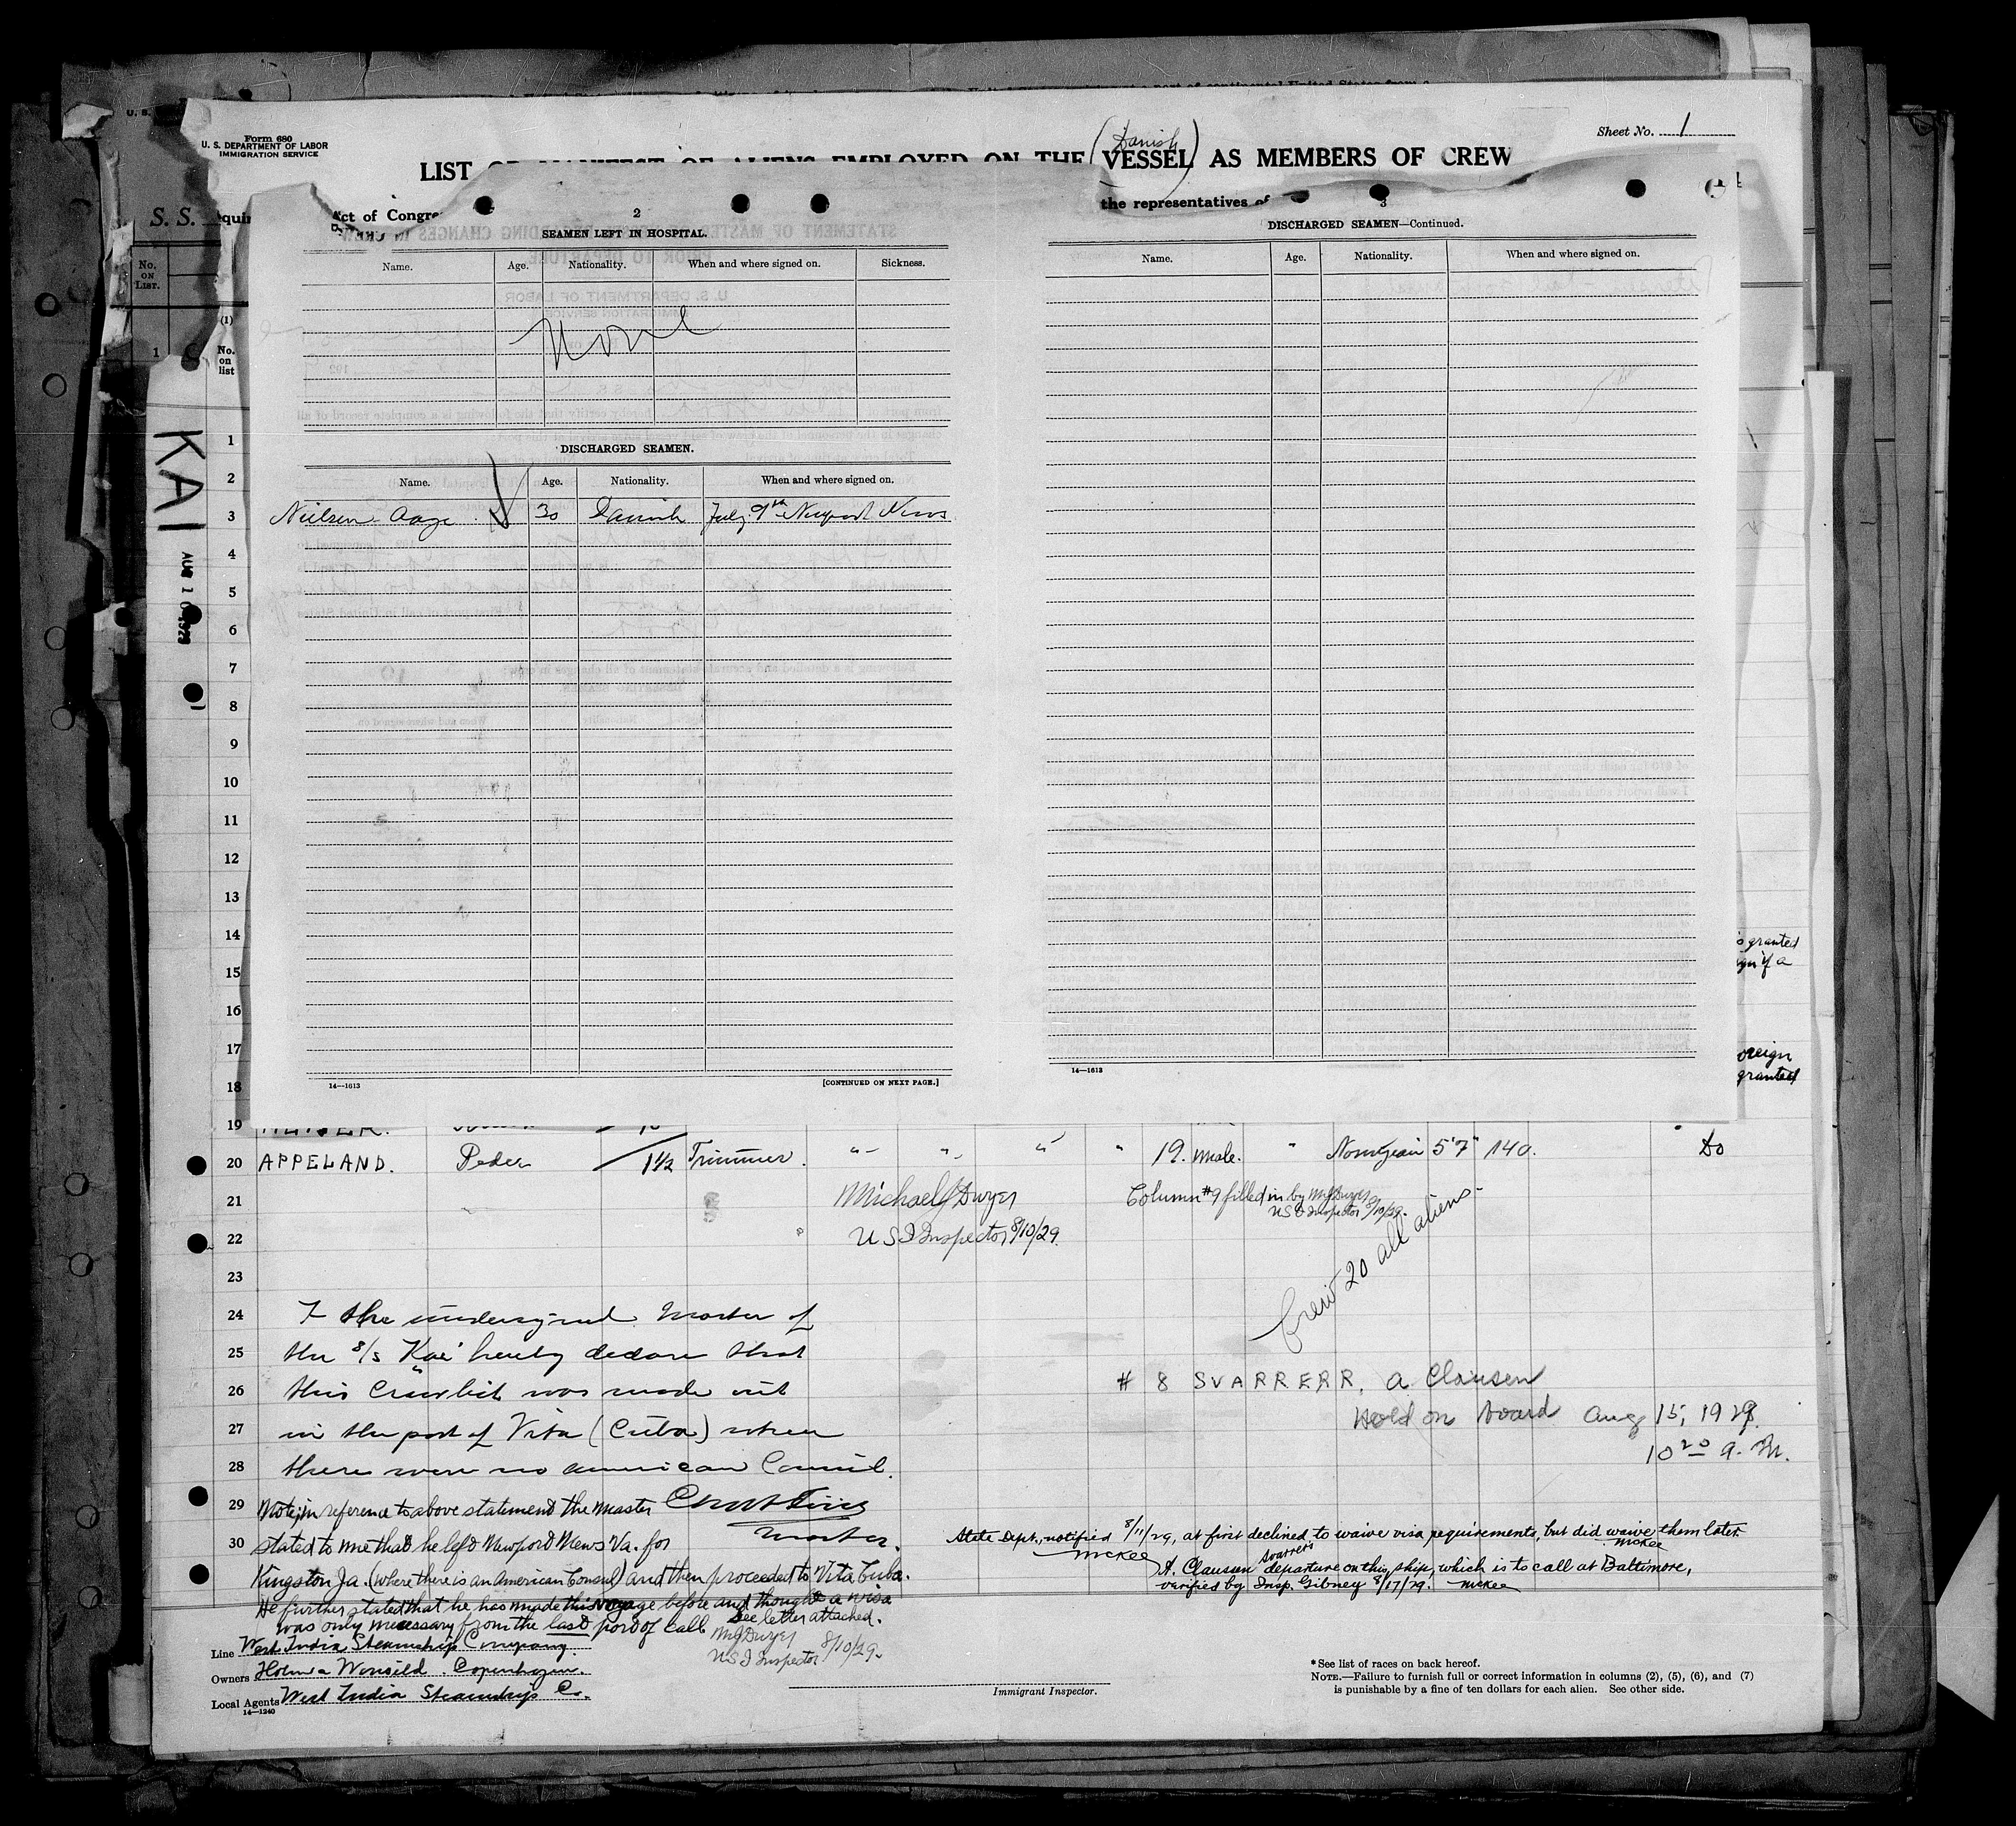 Form 680
U. S. DEPARTMENT OF LABOR
IMMIGRATION SERVICE
Sheet No. 1
(Danish)
LIST OR MANIFEST OF ALIENS EMPLOYED ON THE VESSEL AS MEMBERS OF CREW
S. S.
Act of Congre
the representatives of
No.
on
List.
(1)
No.
on
list
1
KAI
AUG 10 1929
2
SEAMEN LEFT IN HOSPITAL.
Name. Age. Nationality. When and where signed on. Sickness.
None
DISCHARGED SEAMEN.
Name. Age. Nationality. When and where signed on.
Nielsen Aage 30 Danish July 9th Newport News
14—1613
[CONTINUED ON NEXT PAGE.]
3
DISCHARGED SEAMEN—Continued.
Name. Age. Nationality. When and where signed on.
14—1613
1
2
3
4
5
6
7
8
9
10
11
12
13
14
15
16
17
18
19
granted
if a
oreign
granted
20 APPELAND. Peder 1½ Trimmer. " " " " 19. male. " Norwegian 5'7" 140. Do
21 Michael J Dwyer Column #9 filled in by MJ Dwyer
US I Inspector 8/10/29.
22 U S I Inspector 8/10/29.
Crew 20 all aliens
23
24 I the undersigned Master of
25 the s/s "Kai" hereby declare that
26 this Crewlist was made out
# 8 SVARRERR, A Clausen
27 in the port of Vita (Cuba) where
Held on board Aug 15, 1929.
10 20 a. m.
28 there were no American Consul.
29 Note; in reference to above statement the Master
30 stated to me that he left Newport News Va. for
Master.
Kingston Ja. (where there is an American Consul) and then proceeded to Vita Cuba.
He further stated that he has made this voyage before and thought a visa
was only necessary from the last port of call See letter attached.
MJ Dwyer
U S I Inspector 8/10/29.
State Dept., notified 8/11/29, at first declined to waive visa requirements, but did waive them later.
McKee McKee
A. Clausen Svarrer's departure on this ship, which is to call at Baltimore,
verified by Insp. Gibney 8/17/29. McKee
Line West India Steamship Company
Owners Holm & Wonsild. Copenhagen.
Local Agents West India Steamship Co.
14—1240
Immigrant Inspector.
* See list of races on back hereof.
NOTE.—Failure to furnish full or correct information in columns (2), (5), (6), and (7)
is punishable by a fine of ten dollars for each alien. See other side.